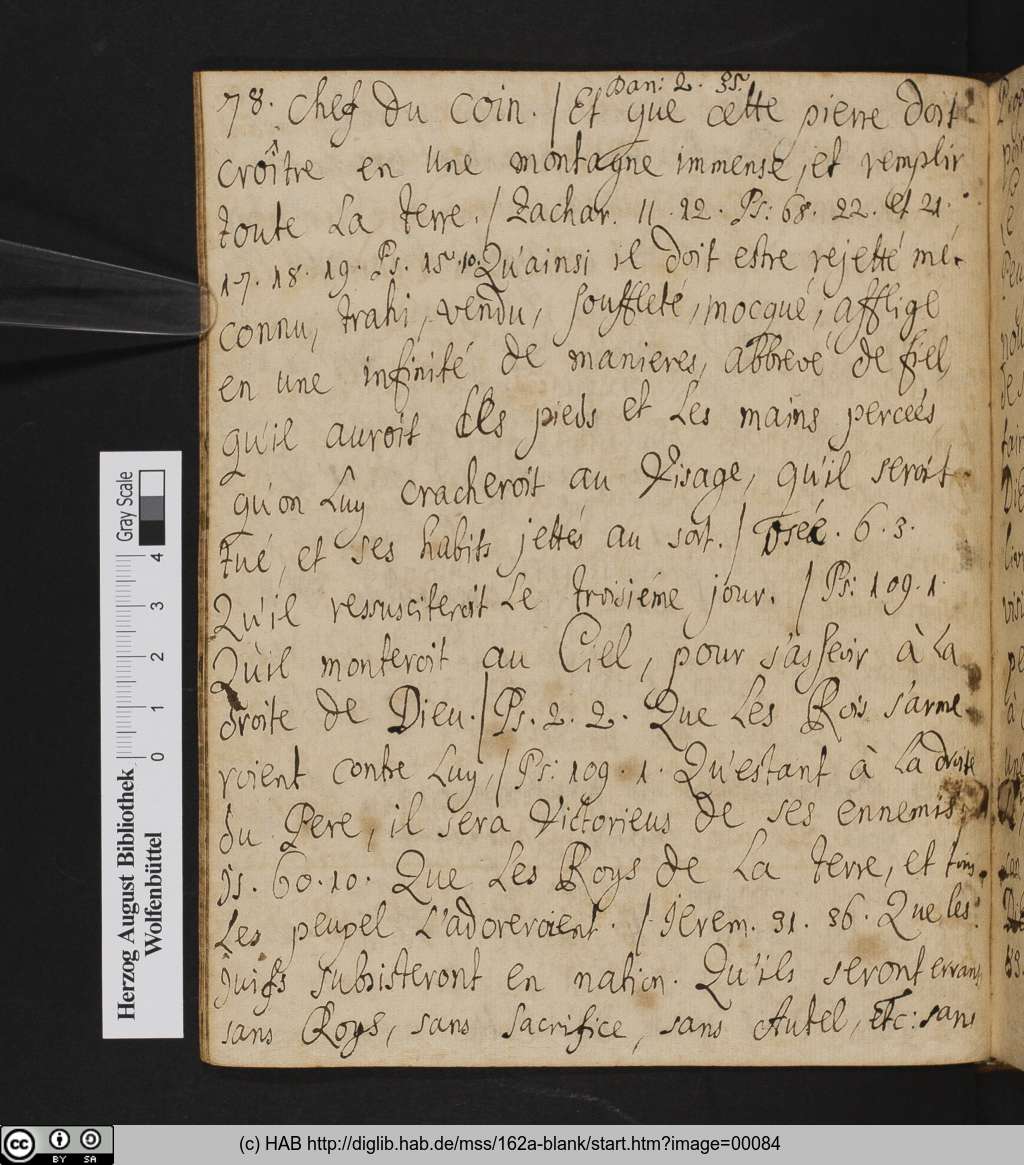 Dan: 2. 35.
78. Chef du coin. / Et que cette pierre doit
croître en une montagne immense, et remplir
toute La terre. / Zachar. 11. 12. Ps: 68. 22. et 21.
17. 18. 19. Ps. 15. 10. Qu'ainsi il doit estre rejetté mé-
connu, trahi, vendu, souffleté, mocqué, affligé
en une infinité de manieres, abbrevé de fiel,
qu'il auroit Les pieds et Les mains percées
qu'on Luy cracheroit au Visage, qu'il seroit
tué, et ses habits jettés au sort. / Osée. 6. 3.
Qu'il ressusciteroit Le troisiéme jour. / Ps: 109. 1
Qu'il monteroit au Ciel, pour s'asseoir à La
droite de Dieu. / Ps. 2. 2. Que Les Rois s'arme-
roient contre Luy, / Ps: 109. 1. Qu'estant à La droite
du Pere, il sera Victorieus de ses ennemis,
Js. 60. 10. Que Les Roys de La terre, et tous
Les peupel L'adoreroient. / Jerem. 31. 36. Que les
Juifs subsisteront en nation. Qu'ils seront errans
sans Roys, sans sacrifice, sans Autel, Etc: sans
Gray Scale
0 1 2 3 4
Herzog August Bibliothek
Wolfenbüttel
cc BY SA
(c) HAB http://diglib.hab.de/mss/162a-blank/start.htm?image=00084